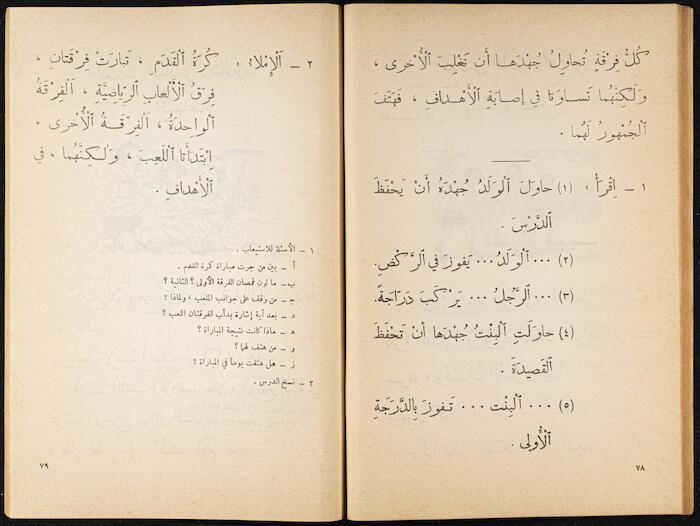 كُلُّ فِرْقَةٍ تُحاوِلُ جُهْدَهـا أَن تَغْلِبَ ٱلْأُخْرى ،
وَلٰكِنَّهُما تَساوَتا في إصابَةِ ٱلْأَهْدافِ ، فَهَتَفَ
ٱلْجُمْهورُ لَهُما .
١ ــ اِقْرَأْ : (١) حاوَلَ ٱلْوَلَدُ جُهْدَهُ أَنْ يَحْفَظَ
ٱلدَّرْسَ .
(٢) ... ٱلْوَلَدُ ... يَفوزَ في ٱلرَّكْضِ.
(٣) ... ٱلرَّجُلُ ... يَرْكَبَ دَرّاجَةً.
(٤) حاوَلَتِ ٱلْبِنْتُ جُهْدَها أَنْ تَحْفَظَ
ٱلْقَصيدَةَ .
(٥) ... ٱلْبِنْت ... تَـفوزَ بِٱلدَّرَجَةِ
ٱلْأُولى .
٧٨
٢ ــ اَلْإِمْلاءُ : كُرَةُ ٱلْقَدَمِ ، تَبارَتْ فِرْقَتانِ ،
فِرَقُ ٱلْأَلْعابِ ٱلرِّياضِيَّةِ ، اَلْفِرْقَةُ
ٱلْواحِدَةُ ، اَلْفِرْقَـةُ ٱلْأُخْرى ،
اِبْتَدَأَتا ٱللَّعِبَ ، وَلـٰكِنَّهُما ، في
ٱلْأَهْدافِ .
١ ــ الأسئلة للاستيعاب .
أ ــ بين من جرت مباراة كرة القدم .
ب ــ ما لون قمصان الفرقة الأولى ؟ الثانية ؟
جـ ــ من وقف على جوانب الملعب ، ولماذا ؟
د ــ بعد أية إشارة بدأت الفرقتان اللعب ؟
هـ ــ ماذا كانت نتيجة المباراة ؟
و ــ من هتف لهما ؟
ز ــ هل هتفت يوماً في المباراة ؟
٢ ــ نسخ الدرس .
٧٩